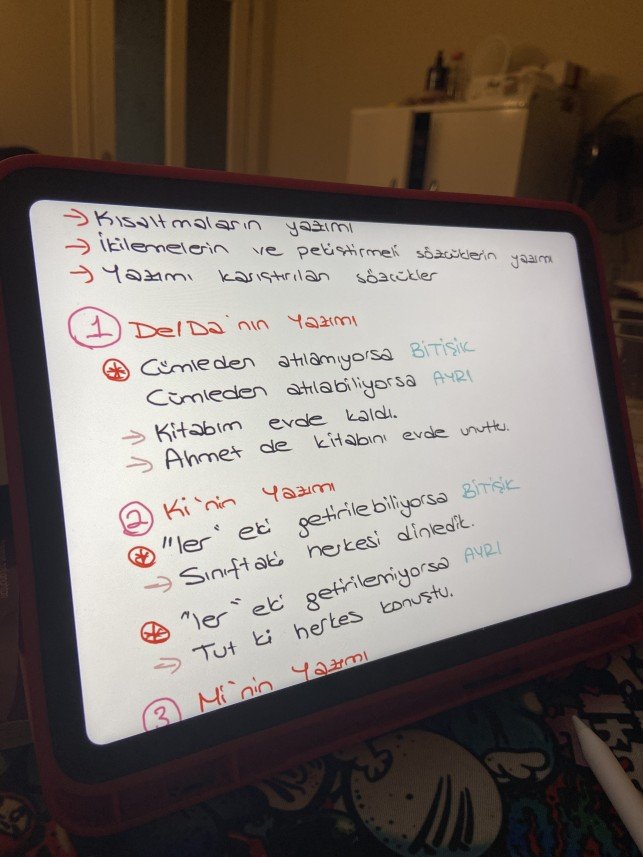 → Kısaltmaların yazımı
→ İkilemelerin ve pekiştirmeli sözcüklerin yazımı
→ Yazımı karıştırılan sözcükler
1 De/Da'nın Yazımı
* Cümleden atılamıyorsa BİTİŞİK
Cümleden atılabiliyorsa AYRI
→ Kitabım evde kaldı.
→ Ahmet de kitabını evde unuttu.
2 Ki'nin Yazımı
* "ler" eki getirilebiliyorsa BİTİŞİK
→ Sınıftaki herkesi dinledik.
* "ler" eki getirilemiyorsa AYRI
→ Tut ki herkes konuştu.
3 Mi'nin Yazımı